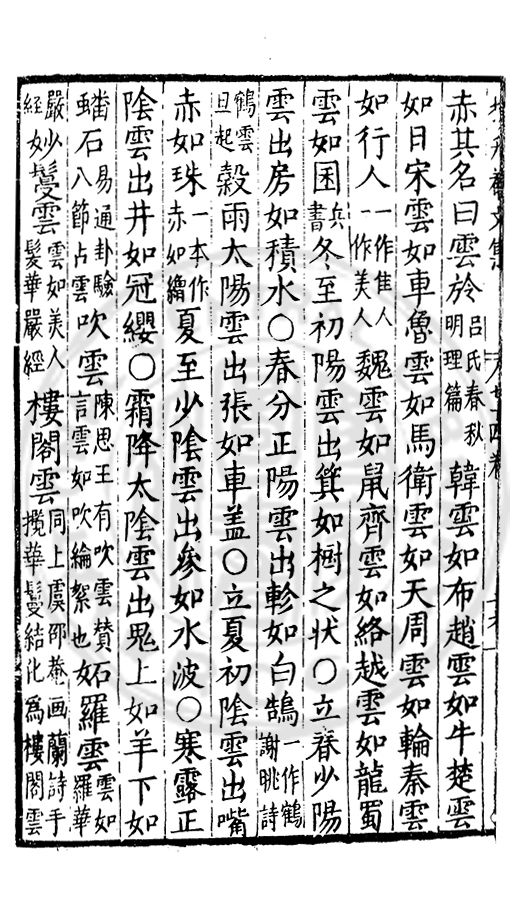 赤其名曰雲於呂氏春秋明理篇韓雲如布趙雲如牛楚雲
如日宋雲如車魯雲如馬衛雲如天周雲如輪秦雲
如行人一作佳人一作美人魏雲如鼠齊雲如絡越雲如龍蜀
雲如囷兵書冬至初陽雲出箕如樹之狀○立春少陽
雲出房如積水○春分正陽雲出軫如白鵠一作鶴謝眺詩
鶴雲旦起穀雨太陽雲出張如車盖○立夏初陰雲出觜
赤如珠一本作赤如繒夏至少陰雲出參如水波○寒露正
陰雲出井如冠纓○霜降太陰雲出鬼上如羊下如
蟠石易通卦驗八節占雲吹雲陳思王有吹雲贊言雲如吹綸絮也妬羅雲雲如羅華
嚴經妙鬘雲雲如美人髮華嚴經樓閣雲同上虞邵菴画蘭詩手攬華鬘結化為樓閣雲